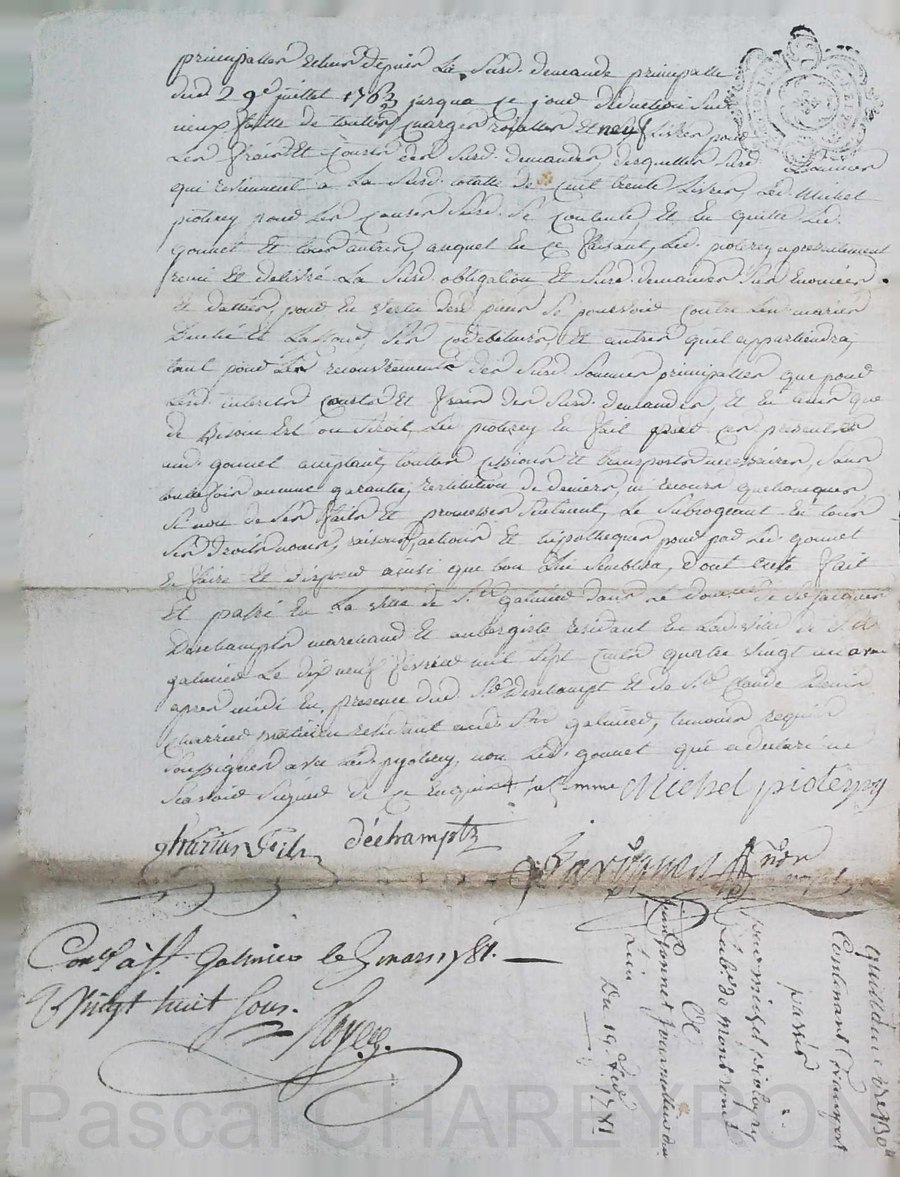 principalles echus depuis La Susd. demande principalle
dud 29e juillet 1763 jusqua ce jour deduction
faitte de touttes charges royalles et neuf Livres pour
Les frais et Cousts des Susd. demandes lesquelles Susd. Sommes
qui reviennent a La Susd. totalle de Cent trente Livres, Led. Michel
pioterey pour Les Causes Susd. Se Contente, et en quitte Led.
gonnet et tous autres, auquel en ce faisant, Led. pioterey a presentement
remi et delivré La Susd. obligation et Susd. demandes Sus enoncées
et dattées, pour en vertu des pieces Se pourvoir contre Led. maries
Lassond, Ses Codebiteurs, et autres qu'il appartiendra,
tant pour Les recouvrements des Susd. Sommes principalles que pour
Lesd. interets Cousts et frais des Susd. demandes, et en tant que
de Besoin Est ou Seroit, Led. pioterey en fait par ces presentes
aud. gonnet acceptant, touttes cessions et transports necessaires, Sans
touttefois aucune garantie, restitution de deniers, ni recours quelconques
Si non de Ses faits et promesses Seulment, Le Subrogeant en tous
Ses Droits noms, raisons, actions et hypotheques pour par Led. gonnet
En faire et disposer ainsi que bon Luy Semblera, Dont Acte fait
Et passé En La ville de St. galmier dans le domicile de Sr. jacques
Deschampts marchand et aubergiste residant En Lad. ville de St.
galmier Le dix neuf fevrier mil Sept Cents quatre vingt un avant
apres midi En presence dud Sr. Deschampt et de Sr. Claude Denis
Charries praticien residant aud. St. galmier, temoins requis
Soussignes avec Led. pyoterey, non Led. gonnet qui a declaré ne
Scavoir Signer de ce enquis et Somme Michel pioterey
Charries Fils déchamptz
Conlé à St. Galmier le 5 mars 1781.
R vingt huit Sous.
Royer
quittance
Contenant transport
passée
par michel pioterey
De
gonnet
Du 19. fevr. 1781
Pascal CHAREYRON